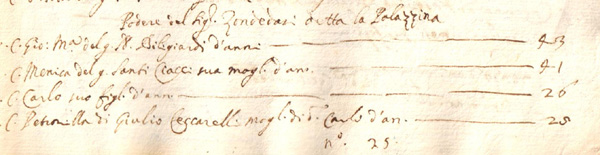 Podere del Sig.r Zondadari detta la Palazzina
C. Gio: M.a del q. Biligiardi d'anni 43
C. Menica del q. Santi Ciacci sua mogl. d'an. 41
C. Carlo suo figl. d'anni 26
C. Petornilla di Giulio Ceccarelli mogl. di d.o Carlo d'an. 25
n.o 25.